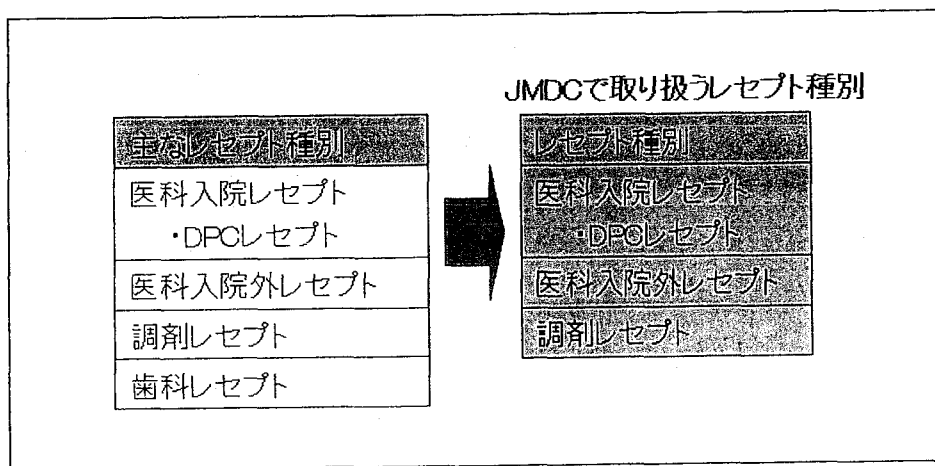 主なレセプト種別
医科入院レセプト
・DPCレセプト
医科入院外レセプト
調剤レセプト
歯科レセプト
JMDCで取り扱うレセプト種別
レセプト種別
医科入院レセプト
・DPCレセプト
医科入院外レセプト
調剤レセプト